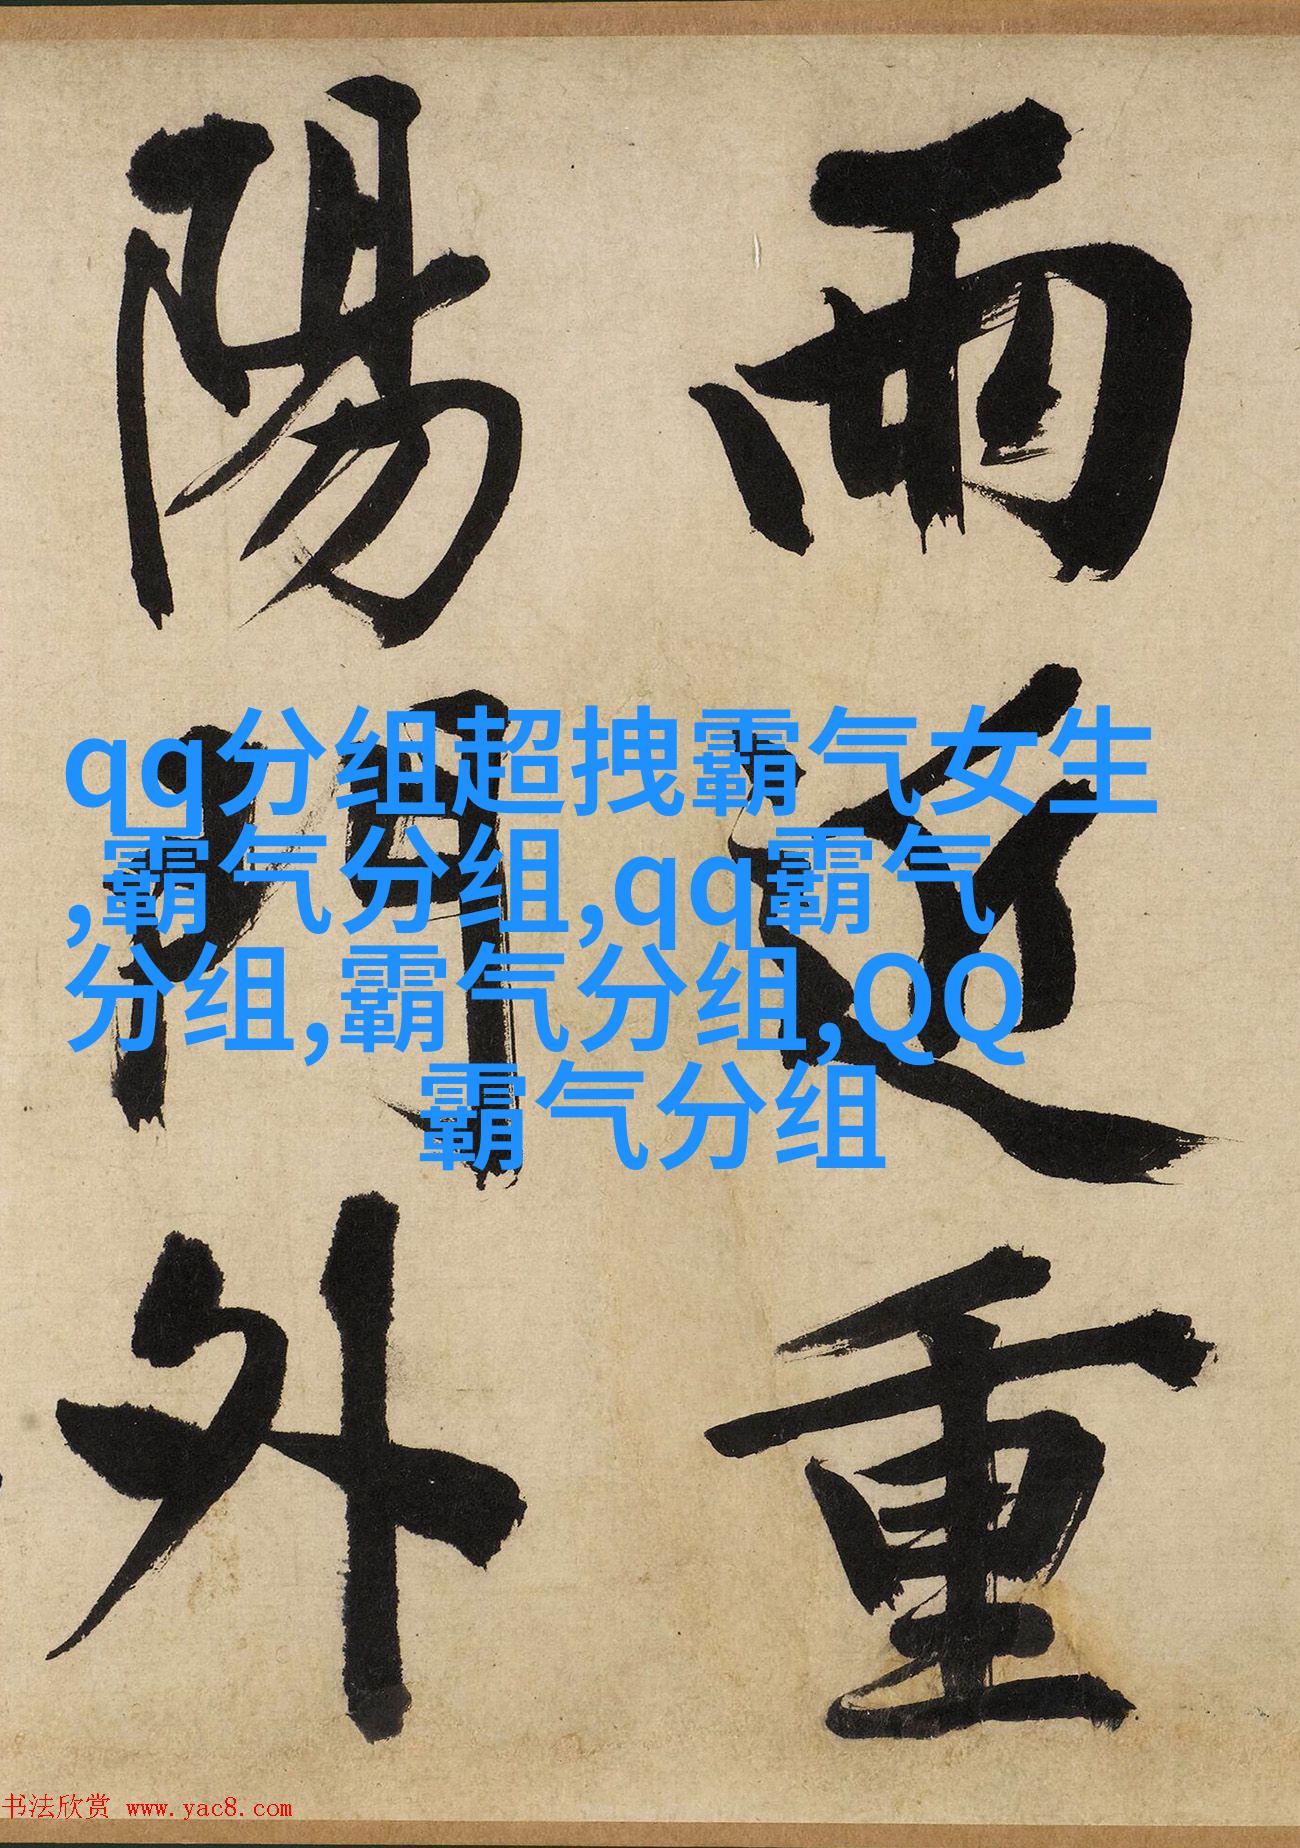 雨近重
陽門外
qq分组超拽霸气女生
,霸气分组,qq霸气
分组,霸气分组,QQ
霸气分组
书法欣赏 www.yac8.com